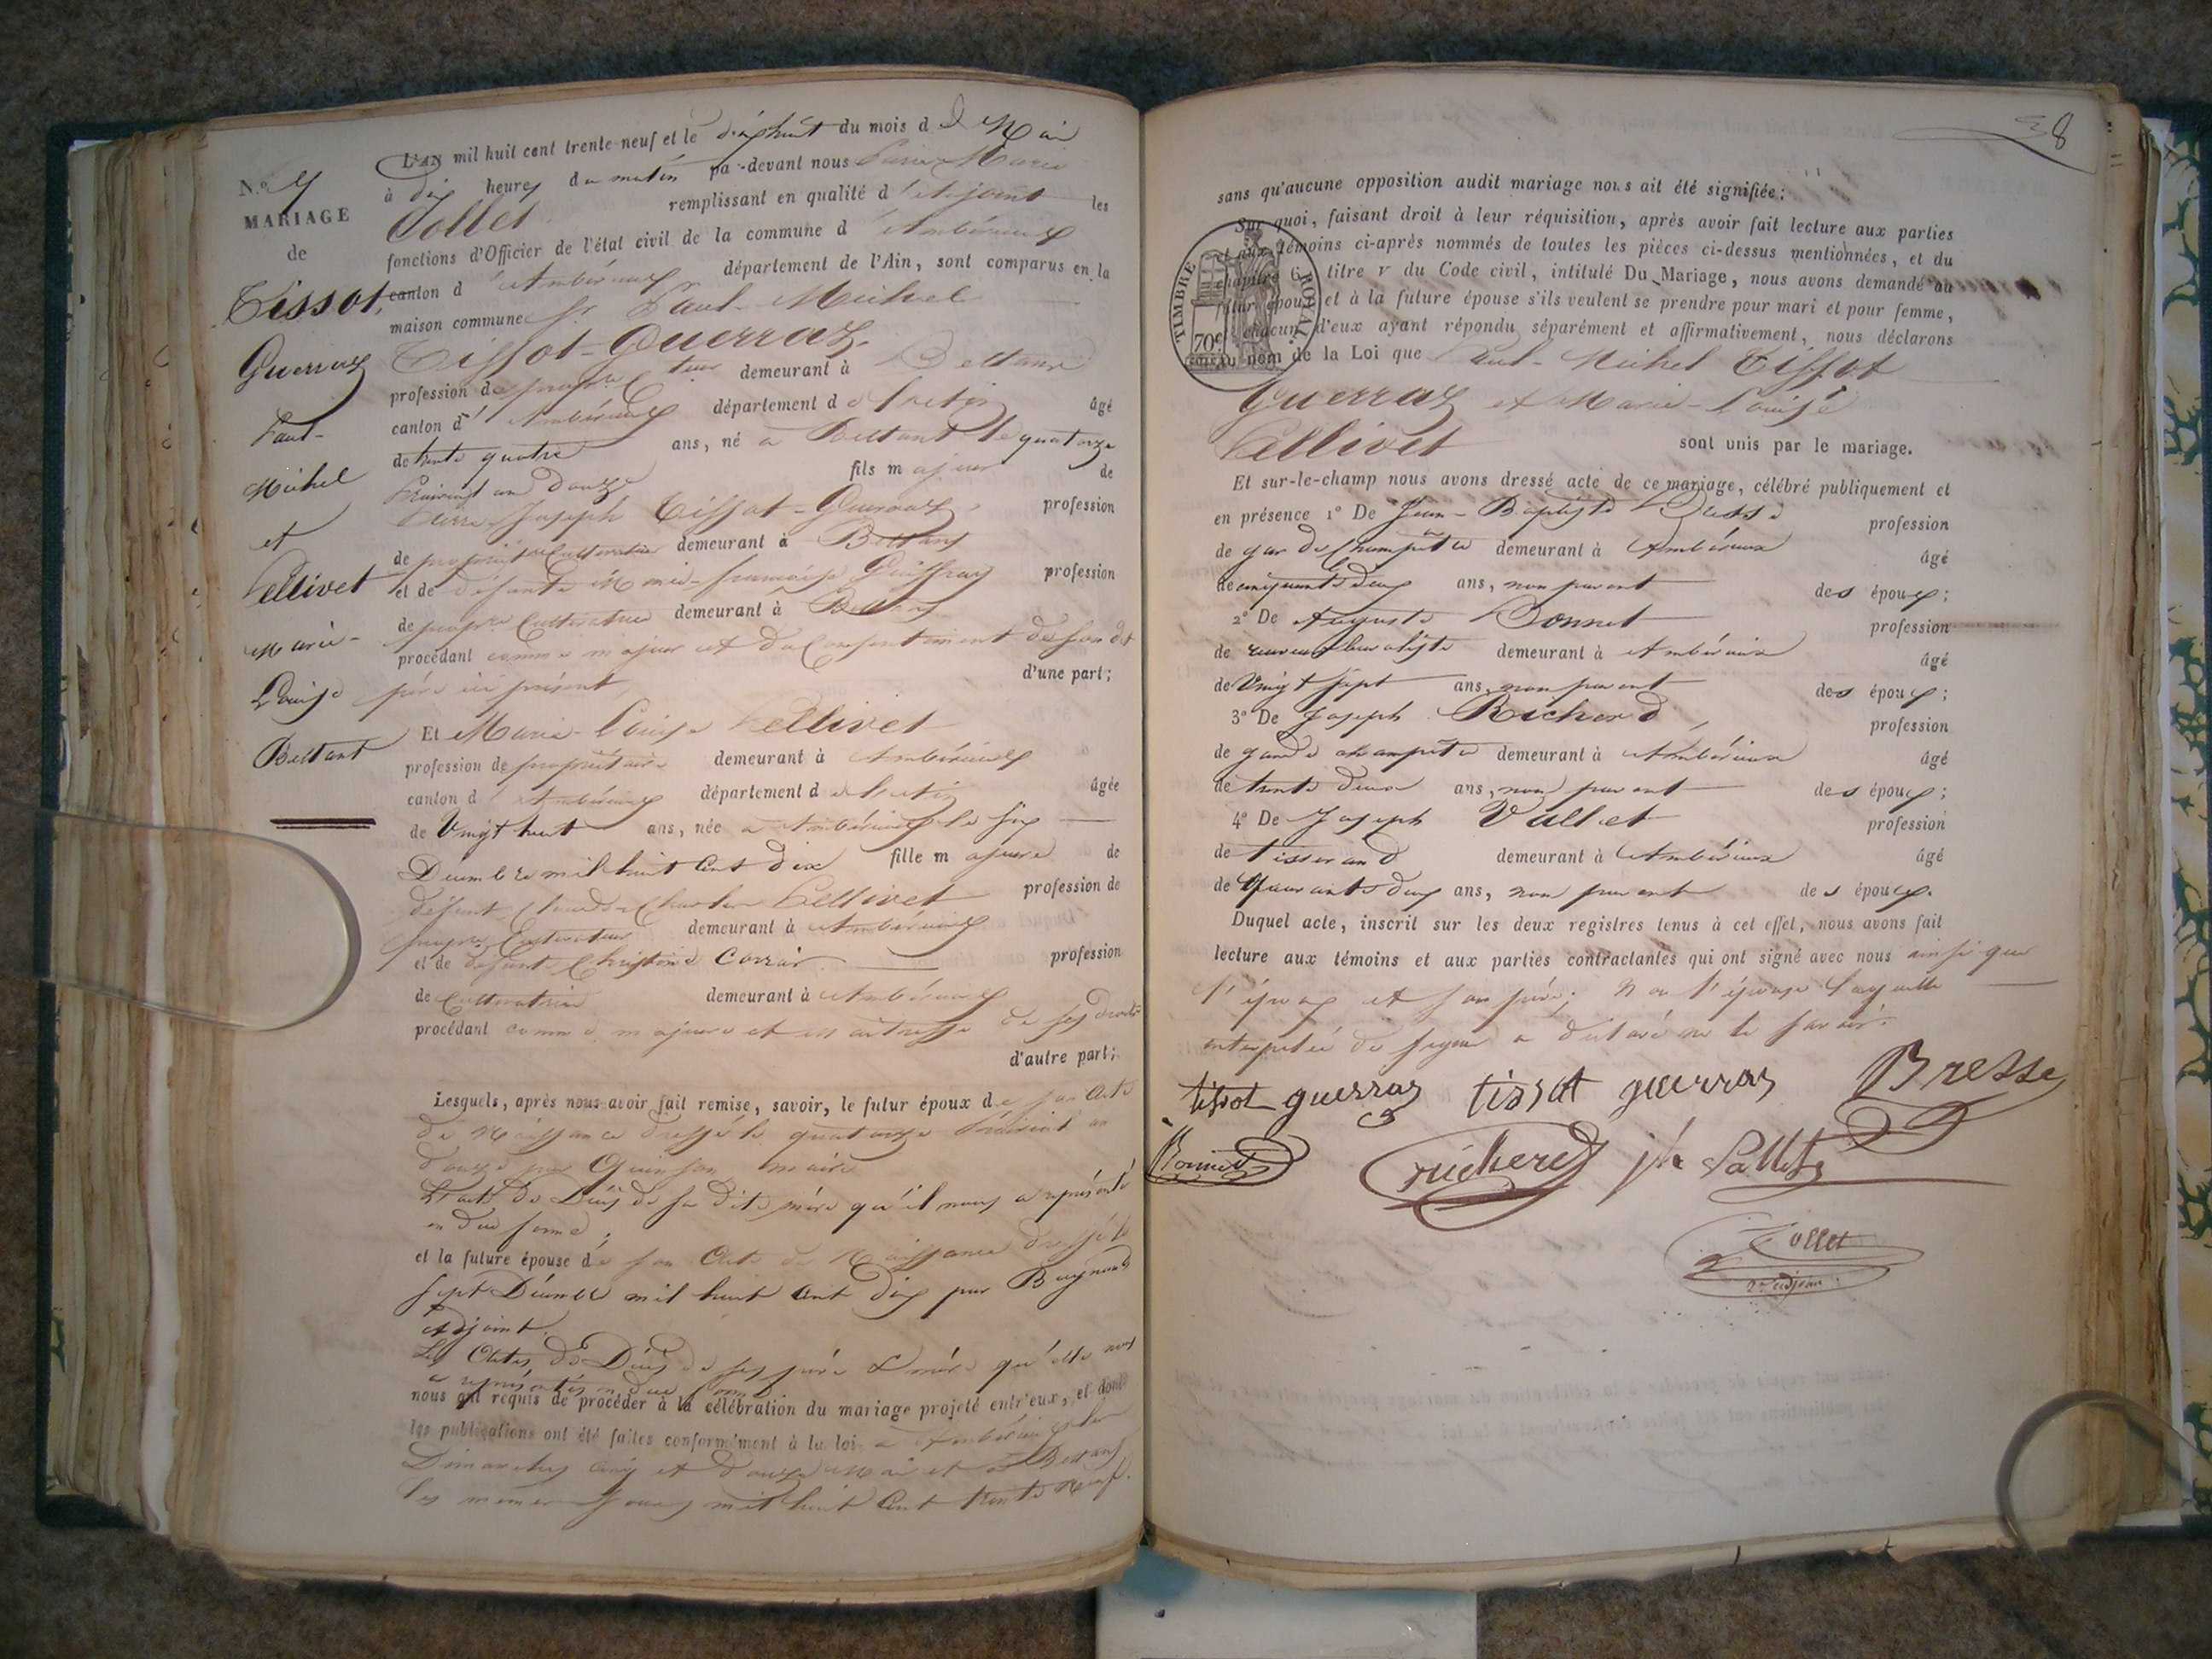 N.° 7
MARIAGE
de
Tissot,
Guerraz
Paul-
Michel
et
Pellivet
Marie-
Louise
Bettant
L'AN mil huit cent trente-neuf et le dix huit du mois de Mai
à dix heures du matin par-devant nous Pierre Marie
Tollet remplissant en qualité d'adjoint les
fonctions d'Officier de l'état civil de la commune d'Ambérieux
canton d'Ambérieux département de l'Ain, sont comparus en la
maison commune Sr Paul-Michel
Tissot-Guerraz.
profession de demeurant à Bettant
canton d'Ambérieux département de l'ain âgé
de trente quatre ans, né à Bettant le quatorze
an douze fils majeur de
Pierre Joseph Tissot-Guerraz, profession
de propriétaire Cultivateur demeurant à Bettant
et de défunte Marie-françoise profession
de propre Cultivatrice demeurant à Bettant
procédant comme majeur et du Consentement de son dit
père ici présent d'une part;
Et Marie-Louise Pellivet
profession de propriétaire demeurant à Ambérieux
canton d'Ambérieux département de l'ain âgée
de Vingt huit ans, née à Ambérieux le six
Décembre mil huit Cent dix fille majeure de
défunt Claude Charles Pellivet profession de
propre Cultivateur demeurant à Ambérieux
et de défunte Christine Corrar profession
de Cultivatrice demeurant à Ambérieux
procédant comme majeure et maîtresse de ses droits
d'autre part;
Lesquels, après nous avoir fait remise, savoir, le futur époux de son acte
de Naissance dressé le quatorze an
douze par Quinson maire
L'acte de Décès de sa dite mère qu'il nous a représenté
en due forme;
et la future épouse de son Acte de Naissance dressé le
sept Décembre mil huit Cent dix par
adjoint.
Les Actes de Décès de ses père & mère qu'elle nous
a représentés en due forme
nous ont requis de procéder à la célébration du mariage projeté entr'eux, et dont
les publications ont été faites conformément à la loi à Ambérieux les
Dimanches cinq et douze Mai et à Bettant
les mêmes Jours mil huit Cent trente Neuf.
38
sans qu'aucune opposition audit mariage nous ait été signifiée:
Sur quoi, faisant droit à leur réquisition, après avoir fait lecture aux parties
et aux témoins ci-après nommés de toutes les pièces ci-dessus mentionnées, et du
chapitre 6, titre v du Code civil, intitulé Du Mariage, nous avons demandé au
futur époux et à la future épouse s'ils veulent se prendre pour mari et pour femme,
chacun d'eux ayant répondu séparément et affirmativement, nous déclarons
au nom de la Loi que Paul-Michel Tissot
Guerraz et Marie-Louise
Pellivet sont unis par le mariage.
TIMBRE ROYAL
70c
Et sur-le-champ nous avons dressé acte de ce mariage, célébré publiquement et
en présence 1° De Jean-Baptiste Bresse profession
de garde Champêtre demeurant à Ambérieux âgé
de cinquante deux ans, non parent des époux;
2° De Auguste Bonnet profession
de demeurant à Ambérieux âgé
de Vingt sept ans, non parent des époux;
3° De Joseph Richerd, profession
de garde champêtre demeurant à Ambérieux âgé
de trente deux ans, non parent des époux;
4° De Joseph Vallet profession
de tisserand demeurant à Ambérieux âgé
de Quarante deux ans, non parent des époux.
Duquel acte, inscrit sur les deux registres tenus à cet effet, nous avons fait
lecture aux témoins et aux parties contractantes qui ont signé avec nous ainsi que
l'époux et son père; Non l'épouse laquelle
interpelée de signer a déclaré ne le savoir.
tissot guerraz tissot guerraz Bresse
Bonnet richerd jh Vallet
Tollet
2e adjoint